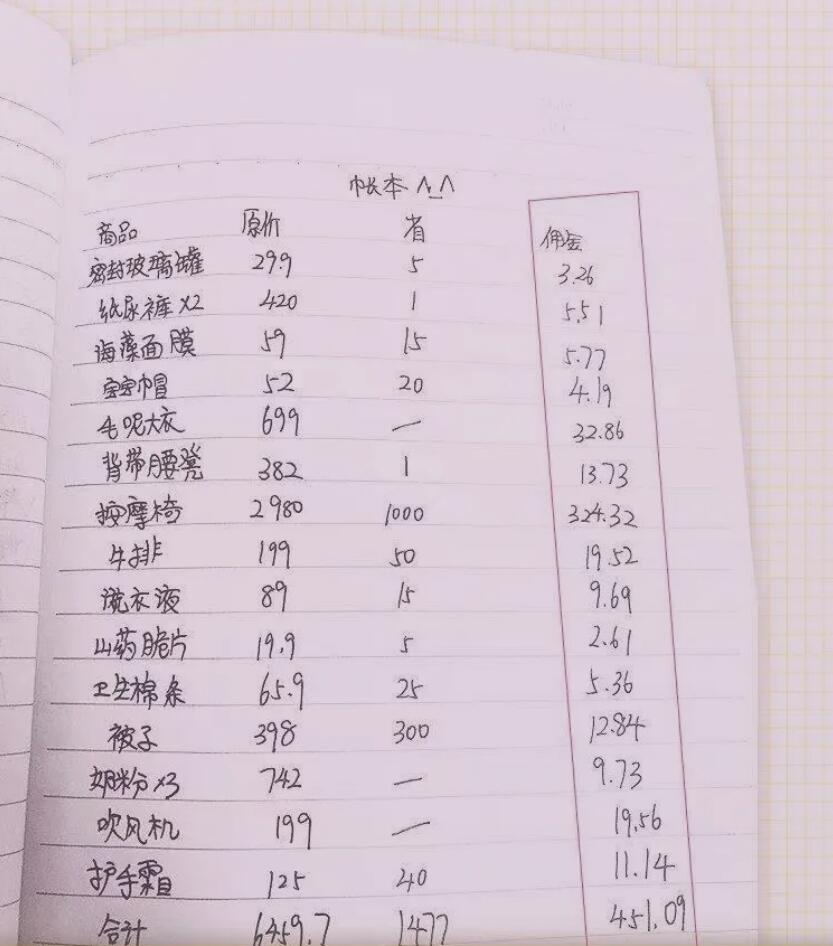 帐本 ^_^
商品 原价 省 佣金
密封玻璃罐 29.9 5 3.26
纸尿裤 x2 420 1 5.51
海藻面膜 59 15 5.77
宝宝帽 52 20 4.19
毛呢大衣 699 — 32.86
背带腰凳 382 1 13.73
按摩椅 2980 1000 324.32
牛排 199 50 19.52
洗衣液 89 15 9.69
山药脆片 19.9 5 2.61
卫生棉条 65.9 25 5.36
被子 398 300 12.84
奶粉 x3 742 — 9.73
吹风机 199 — 19.56
护手霜 125 40 11.14
合计 6459.7 1477 451.09